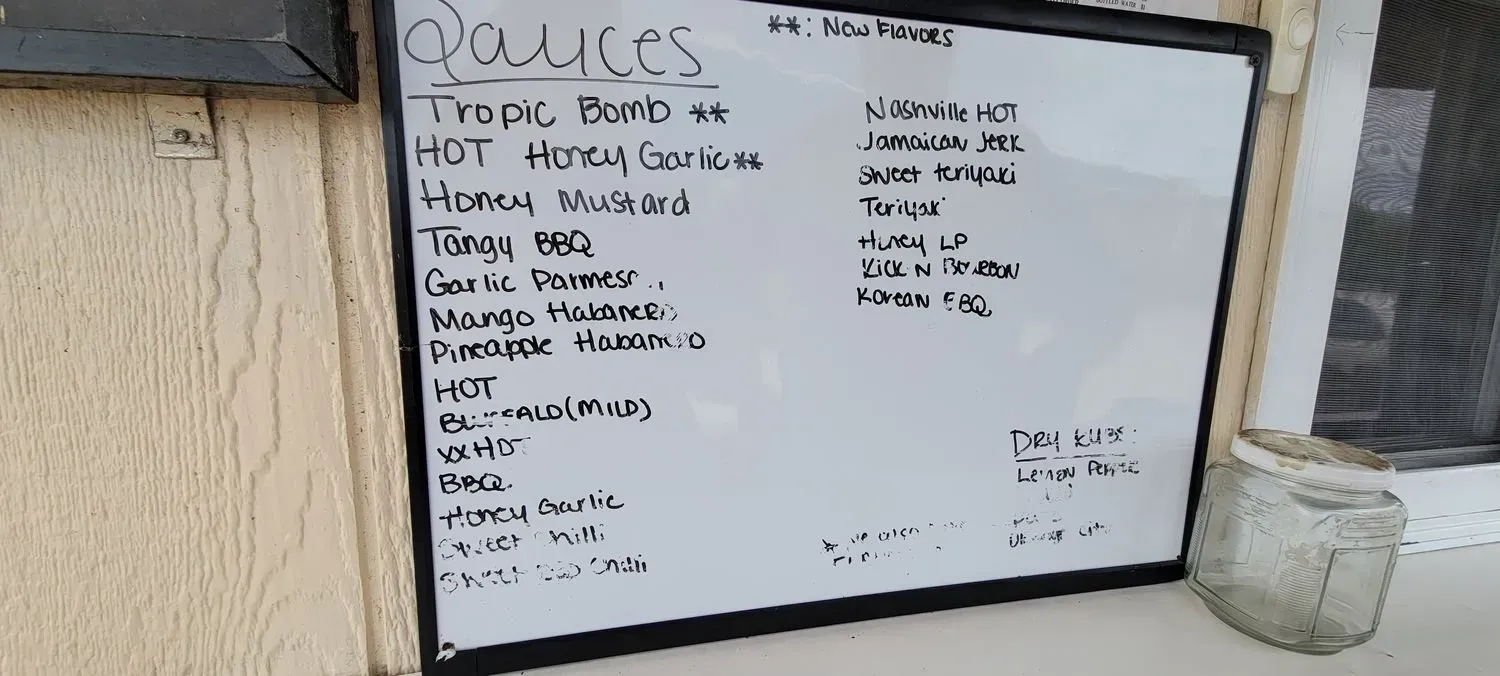 Sauces
**: New Flavors
Tropic Bomb **
HOT Honey Garlic **
Honey Mustard
Tangy BBQ
Garlic Parmes
Mango Habanero
Pineapple Habanero
HOT
BUFFALO (MILD)
XXHOT
BBQ
Honey Garlic
Sweet Chilli
Sweet Chili
Nashville HOT
Jamaican Jerk
Sweet teriyaki
Teriyaki
Honey LP
Kick N BOURBON
Korean BBQ
DRY RUBS:
Lemon Pepper
City
* we also have
BOTTLED WATER